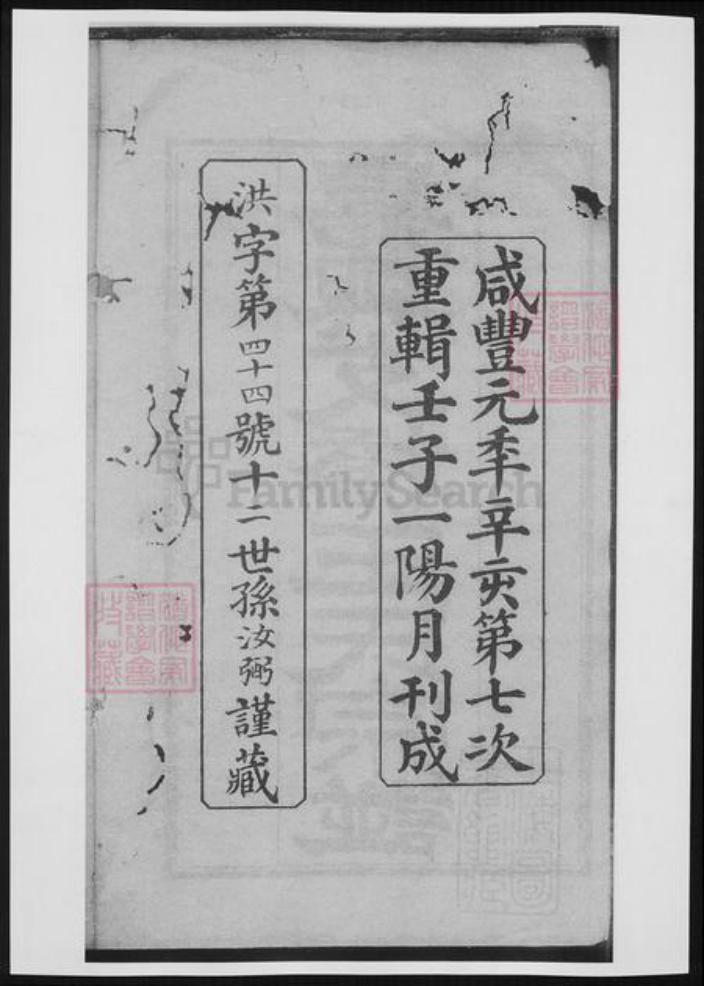 咸豐元秊辛亥第七次
重輯壬子一陽月刊成
洪字第四十四號十二世孫汝弼謹藏
FamilySearch